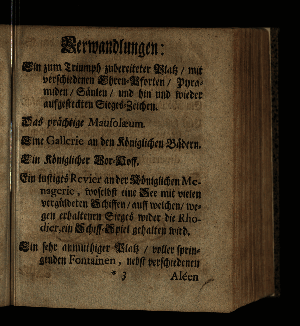 Verwandlungen:
Ein zum Triumph zubereiteter Platz / mit
verschiedenen Ehren-Pforten / Pyra-
miden / Säulen / und hin und wieder
aufgesteckten Sieges-Zeichen.
Das prächtige Mausolæum.
Eine Gallerie an den Königlichen Bädern.
Ein Königlicher Vor-Hoff.
Ein lustiges Revier an der Königlichen Me-
nagerie, woselbst eine See mit vielen
vergüldeten Schiffen / auff welchen / we-
gen erhaltenen Sieges wider die Rho-
dier, ein Schiff-Spiel gehalten wird.
Ein sehr anmuthiger Platz / voller sprin-
genden Fontainen, nebst verschiedenen
* 3 Aléen